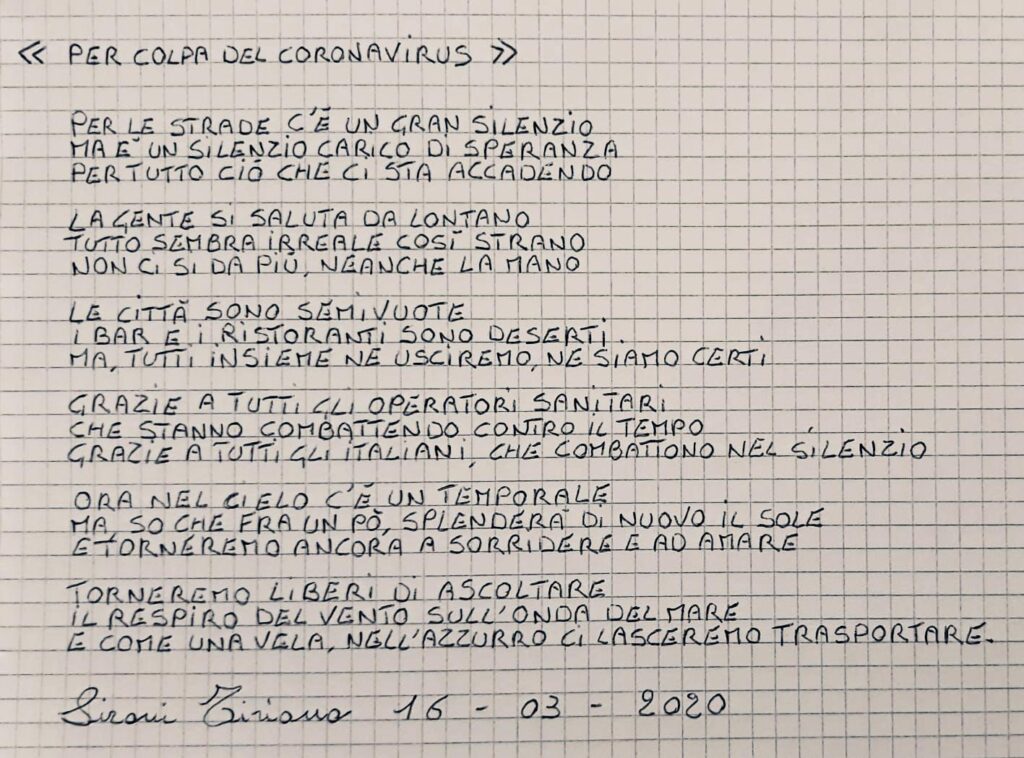 « PER COLPA DEL CORONAVIRUS »
PER LE STRADE C'È UN GRAN SILENZIO
MA E' UN SILENZIO CARICO DI SPERANZA
PER TUTTO CIÒ CHE CI STA ACCADENDO
LA GENTE SI SALUTA DA LONTANO
TUTTO SEMBRA IRREALE COSÌ STRANO
NON CI SI DA PIÙ, NEANCHE LA MANO
LE CITTÀ SONO SEMIVUOTE
I BAR E I RISTORANTI SONO DESERTI.
MA, TUTTI INSIEME NE USCIREMO, NE SIAMO CERTI
GRAZIE A TUTTI GLI OPERATORI SANITARI
CHE STANNO COMBATTENDO CONTRO IL TEMPO
GRAZIE A TUTTI GLI ITALIANI, CHE COMBATTONO NEL SILENZIO
ORA NEL CIELO C'È UN TEMPORALE
MA, SO CHE FRA UN PÒ, SPLENDERA' DI NUOVO IL SOLE
E TORNEREMO ANCORA A SORRIDERE E AD AMARE
TORNEREMO LIBERI DI ASCOLTARE
IL RESPIRO DEL VENTO SULL'ONDA DEL MARE
E COME UNA VELA, NELL'AZZURRO CI LASCEREMO TRASPORTARE.
Sironi Tiziano 16 - 03 - 2020